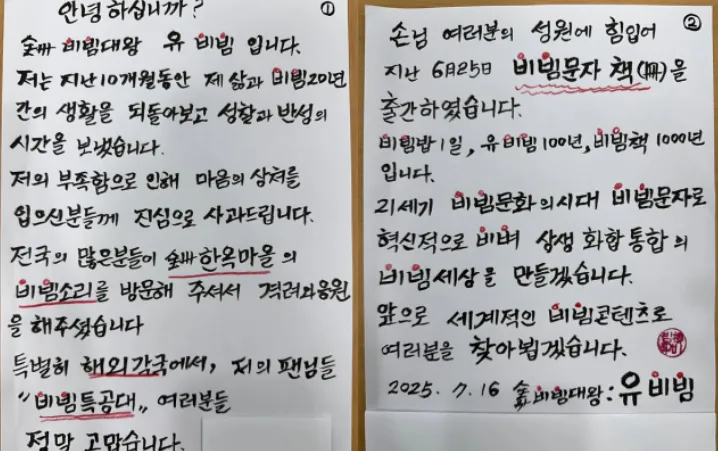 안녕하십니까? ①
비빔대왕 유비빔 입니다.
저는 지난 10개월동안 제 삶과 비빔 20년
간의 생활을 되돌아보고 성찰과 반성의
시간을 보냈습니다.
저의 부족함으로 인해 마음의 상처를
입으신분들께 진심으로 사과드립니다.
전국의 많은분들이 한옥마을의
비빔소리를 방문해 주셔서 격려와응원
을 해주셨습니다
특별히 해외각국에서, 저의 팬님들
"비빔특공대" 여러분들
정말 고맙습니다.
손님 여러분의 성원에 힘입어 ②
지난 6월25일 비빔문자 책(冊)을
출간하였습니다.
비빔밥 1일, 유비빔 100년, 비빔책 1000년
입니다.
21세기 비빔문화의시대 비빔문자로
혁신적으로 비벼 상생 화합 통합의
비빔세상을 만들겠습니다.
앞으로 세계적인 비빔콘텐츠로
여러분을 찾아뵙겠습니다.
2025. 7. 16 비빔대왕: 유비빔